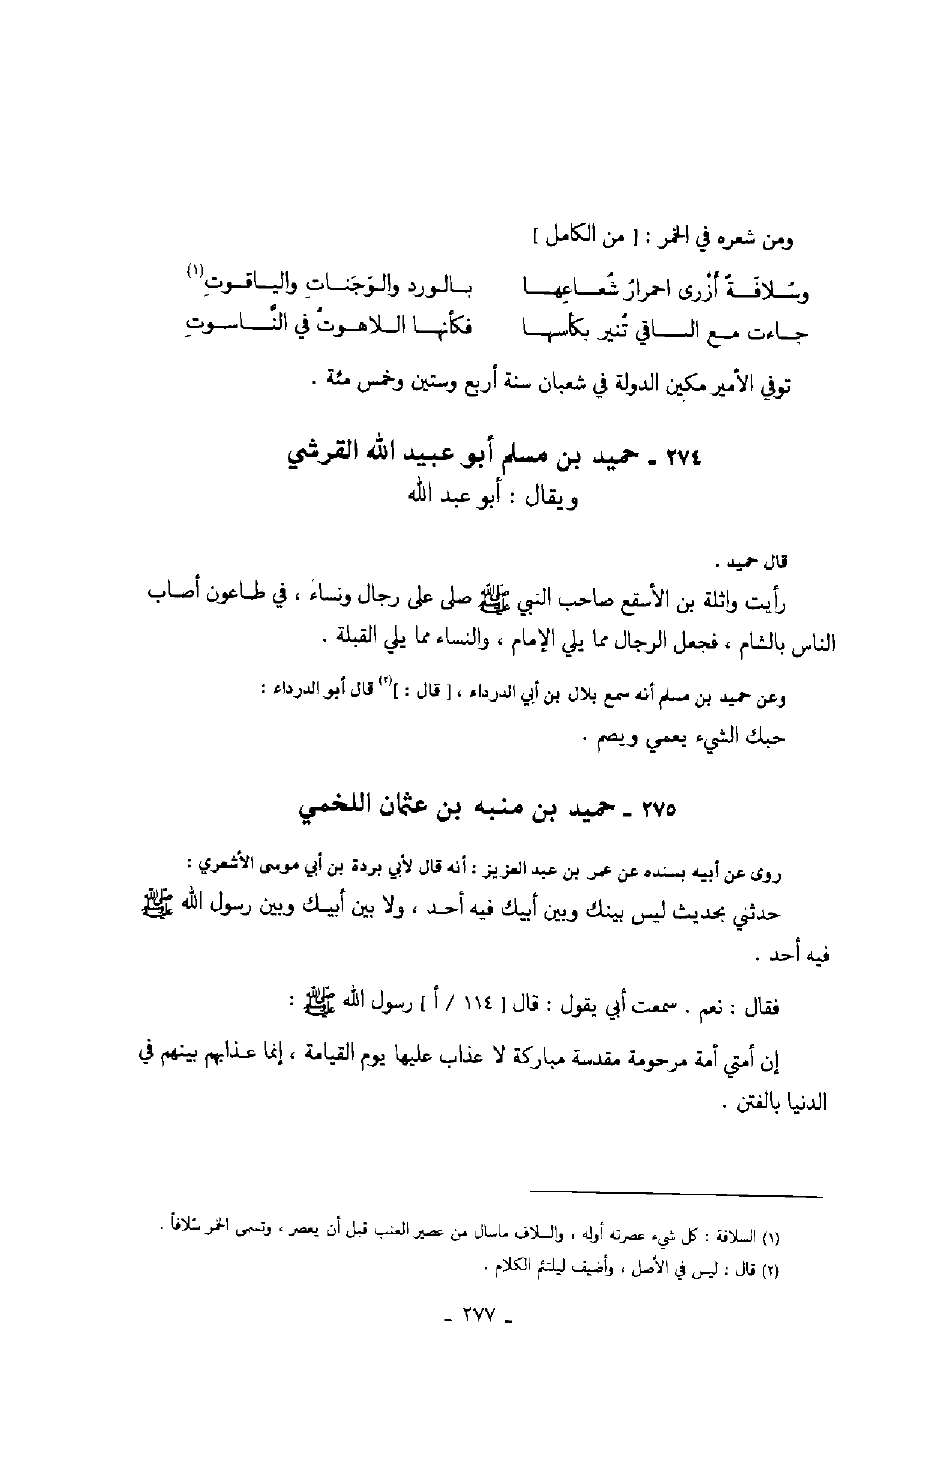 ومن شعره في الخمر : [ من الكامل ]
وسُـلافَـةٌ أزْرى احمرارُ شُعـاعِهـا بـالورد والوَجَنـاتِ والياقـوتِ(١)
جـاءت مـع السـاقي تُنير بكأسِهـا فكأنهـا اللاهـوتُ في النَّـاسـوتِ
توفي الأمير مكين الدولة في شعبان سنة أربع وستين وخمس مئة .
٢٧٤ ـ حميد بن مسلم أبو عبيد الله القرشي
ويقال : أبو عبد الله
قال حميد .
رأيت واثلة بن الأسقع صاحب النبي ﷺ صلى على رجال ونساءً ، في طاعون أصاب
الناس بالشام ، فجعل الرجال مما يلي الإمام ، والنساء مما يلي القبلة .
وعن حميد بن مسلم أنه سمع بلال بن أبي الدرداء ، [ قال : ](٢) قال أبو الدرداء :
حبك الشيء يعمي ويصم .
٢٧٥ ـ حميد بن منبه بن عثمان اللخمي
روى عن أبيه بسنده عن عمر بن عبد العزيز : أنه قال لأبي بردة بن أبي موسى الأشعري :
حدثني بحديث ليس بينك وبين أبيك فيه أحد ، ولا بين أبيك وبين رسول الله ﷺ
فيه أحد .
فقال : نعم . سمعت أبي يقول : قال [ ١١٤ / أ ] رسول الله ﷺ :
إن أمتي أمة مرحومة مقدسة مباركة لا عذاب عليها يوم القيامة ، إنما عذابهم بينهم في
الدنيا بالفتن .
(١) السلافة : كل شيء عصرته أوله ، والسلاف ماسال من عصير العنب قبل أن يعصر ، وتسمى الخمر سُلافاً .
(٢) قال : ليس في الأصل ، وأضيف ليلتئم الكلام .
ـ ٢٧٧ ـ